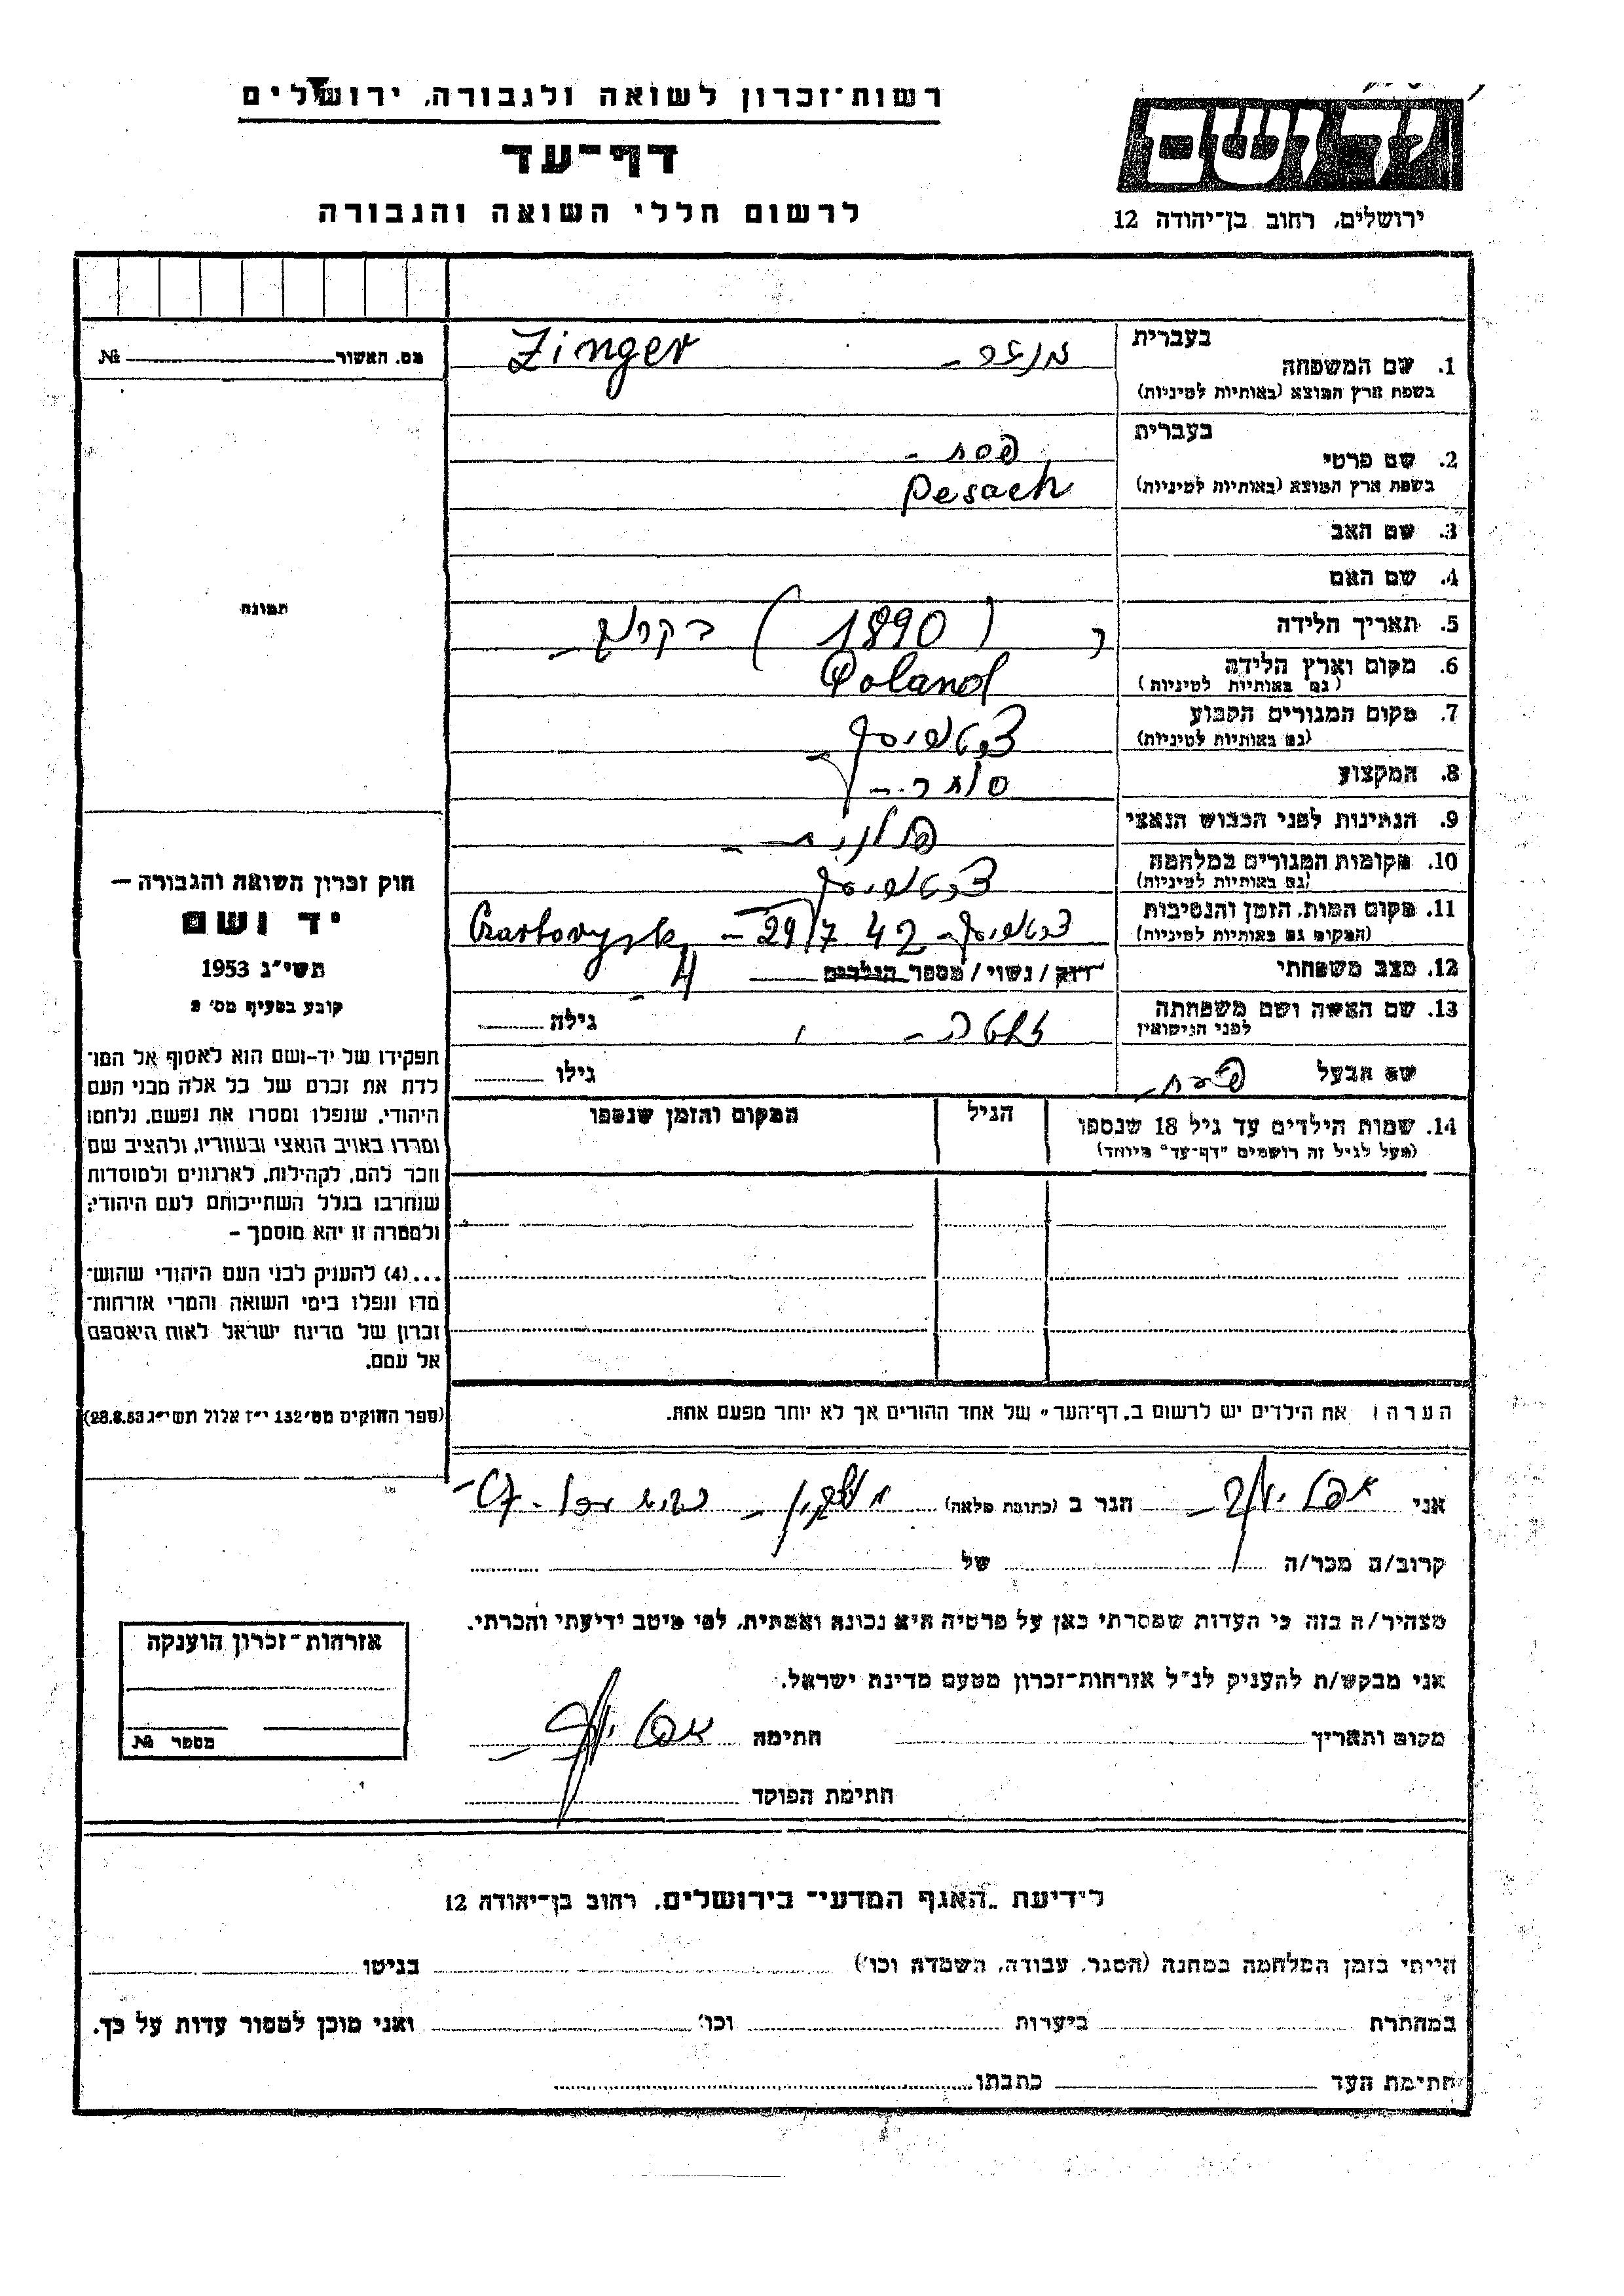 רשות־זכרון לשואה ולגבורה, ירושלים
דף־עד
לרשום חללי השואה והגבורה
יד ושם
ירושלים, רחוב בן־יהודה 12
מס. האשור № 
בעברית
1. שם המשפחה Zinger
בשפת ארץ המוצא (באותיות לטיניות)
בעברית פסח -
2. שם פרטי
בשפת ארץ המוצא (באותיות לטיניות) Pesach
3. שם האב
4. שם האם
5. תאריך הלידה (1890)
6. מקום וארץ הלידה Poland
(גם באותיות לטיניות)
7. מקום המגורים הקבוע
(גם באותיות לטיניות)
8. המקצוע סוחר -
9. הנתינות לפני הכבוש הנאצי פולנית -
10. מקומות המגורים במלחמה
(גם באותיות לטיניות)
11. מקום המות, הזמן והנסיבות 29/7 42 -
(המקום גם באותיות לטיניות)
12. מצב משפחתי רווק / נשוי / מספר הילדים 4
13. שם האשה ושם משפחתה גילה
לפני הנישואין
שם הבעל גילו
14. שמות הילדים עד גיל 18 שנספו הגיל המקום והזמן שנספו
(מעל לגיל זה רושמים "דף־עד" מיוחד)
הערה: את הילדים יש לרשום ב„דף־העד" של אחד ההורים אך לא יותר מפעם אחת.
תמונה
חוק זכרון השואה והגבורה —
יד ושם
תשי"ג 1953
קובע בסעיף מס' 2
תפקידו של יד-ושם הוא לאסוף אל המו־
לדת את זכרם של כל אלה מבני העם
היהודי, שנפלו ומסרו את נפשם, נלחמו
ומרדו באויב הנאצי ובעוזריו, ולהציב שם
וזכר להם, לקהילות, לארגונים ולמוסדות
שנחרבו בגלל השתייכותם לעם היהודי;
ולמטרה זו יהא מוסמך –
...(4) להעניק לבני העם היהודי שהוש־
מדו ונפלו בימי השואה והמרי אזרחות־
זכרון של מדינת ישראל לאות היאספם
אל עמם.
(ספר החוקים מס' 132 י"ז אלול תשי"ג 28.8.53)
אני חגר ב (כתובת מלאה)
קרוב/ה מכר/ה של
מצהיר/ה בזה כי העדות שמסרתי כאן על פרטיה היא נכונה ואמתית, לפי מיטב ידיעתי והכרתי.
אני מבקש/ת להעניק לנ"ל אזרחות־זכרון מטעם מדינת ישראל.
מקום ותאריך חתימה
חתימת הפוקד
אזרחות־זכרון הוענקה
מספר №
לידיעת „האגף המדעי־ בירושלים, רחוב בן־יהודה 12
הייתי בזמן המלחמה במחנה (הסגר, עבודה, השמדה וכו') בגיטו
במחתרת ביערות וכו' ואני מוכן למסור עדות על כך.
חתימת העד כתבתו